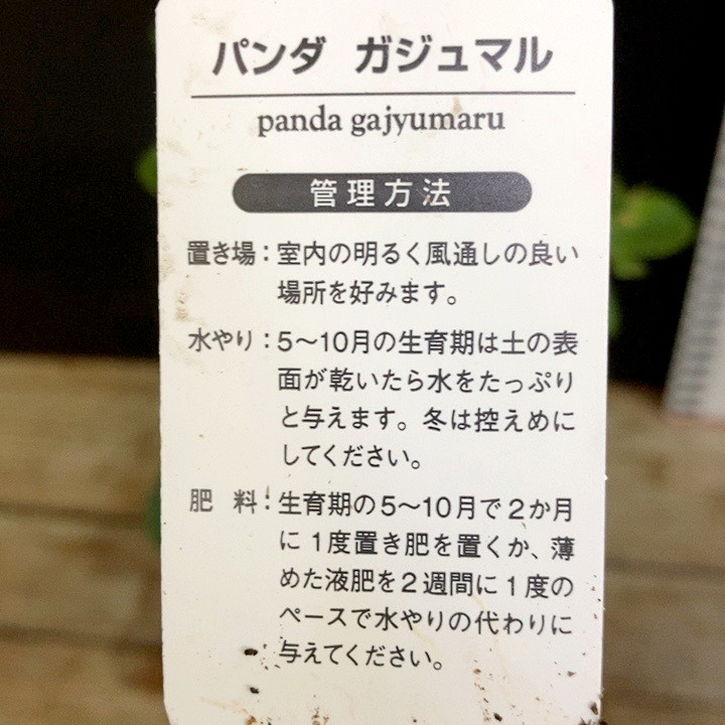 パンダ ガジュマル
panda gajyumaru
管理方法
置き場：室内の明るく風通しの良い
場所を好みます。
水やり：5～10月の生育期は土の表
面が乾いたら水をたっぷり
と与えます。冬は控えめに
してください。
肥　料：生育期の5～10月で2か月
に1度置き肥を置くか、薄
めた液肥を2週間に1度の
ペースで水やりの代わりに
与えてください。